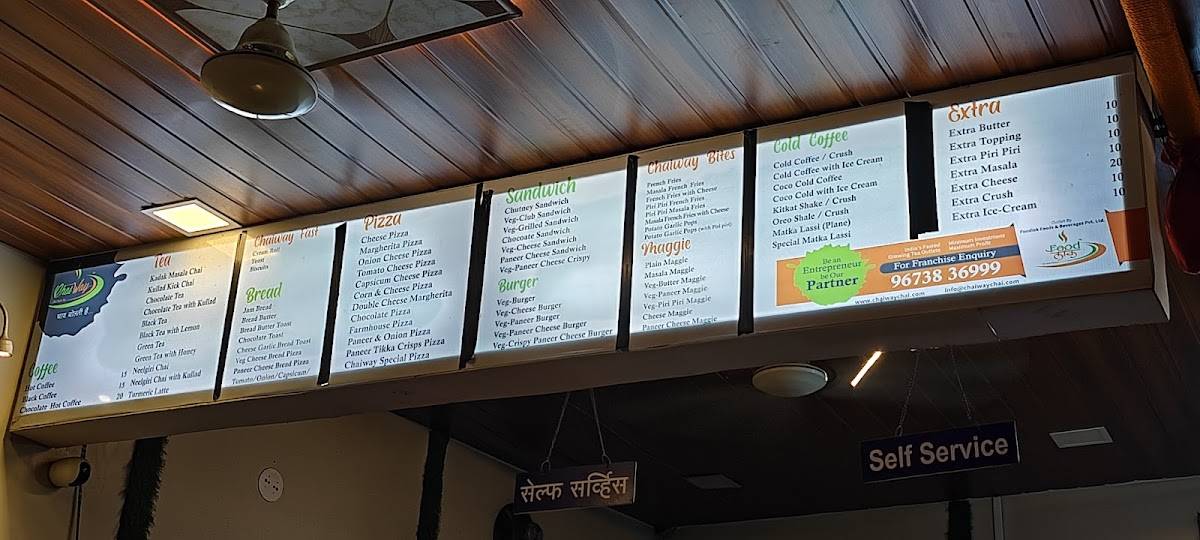 ChaiWay
चाय बोलती हैं
Coffee
Hot Coffee 15
Black Coffee 15
Chocolate Hot Coffee 20
Tea
Kadak Masala Chai
Kullad Kick Chai
Chocolate Tea
Chocolate Tea with Kullad
Black Tea
Black Tea with Lemon
Green Tea
Green Tea with Honey
Neelgiri Chai
Neelgiri Chai with Kullad
Turmeric Latte
Chaiway Fast
Cream Roll
Toast
Biscuits
Bread
Jam Bread
Bread Butter
Bread Butter Toast
Chocolate Toast
Cheese Garlic Bread Toast
Veg Cheese Bread Pizza
Paneer Cheese Bread Pizza
Tomato/Onion/Capsicum/
Pizza
Cheese Pizza
Margherita Pizza
Onion Cheese Pizza
Tomato Cheese Pizza
Capsicum Cheese Pizza
Corn & Cheese Pizza
Double Cheese Margherita
Chocolate Pizza
Farmhouse Pizza
Paneer & Onion Pizza
Paneer Tikka Crisps Pizza
Chaiway Special Pizza
Sandwich
Chutney Sandwich
Veg-Club Sandwich
Veg-Grilled Sandwich
Chocoate Sandwich
Veg-Cheese Sandwich
Paneer Cheese Sandwich
Veg-Paneer Cheese Crispy
Burger
Veg-Burger
Veg-Cheese Burger
Veg-Paneer Burger
Veg-Paneer Cheese Burger
Veg-Crispy Paneer Cheese Burger
Chaiway Bites
French Fries
Masala French Fries
French Fries with Cheese
Piri Piri French Fries
Piri Piri Masala Fries
Masala French Fries with Cheese
Potato Garlic Pops
Potato Garlic Pops (with Piri piri)
Maggie
Plain Maggie
Masala Maggie
Veg-Butter Maggie
Veg-Paneer Maggie
Veg-Piri Piri Maggie
Cheese Maggie
Paneer Cheese Maggie
Cold Coffee
Cold Coffee / Crush
Cold Coffee with Ice Cream
Coco Cold Coffee
Coco Cold with Ice Cream
Kitkat Shake / Crush
Oreo Shale / Crush
Matka Lassi (Plane)
Special Matka Lassi
Extra
Extra Butter 10
Extra Topping 10
Extra Piri Piri 10
Extra Masala 10
Extra Cheese 20
Extra Crush 10
Extra Ice-Cream
Be an
Entrepreneur
be Our
Partner
India's Fastest
Growing Tea Outlets
Minimum Investment
Maximum Profit
For Franchise Enquiry
96738 36999
www.chaiwaychai.com
Info@chaiwaychai.com
Outlet By
Foodlok Foods & Beverages Pvt. Ltd.
Food
लोक
सेल्फ सर्व्हिस
Self Service